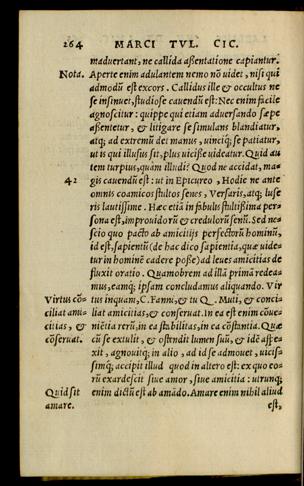 264 MARCI TVL. CIC.
maduertant, ne callida aßentatione capiantur.
Nota. Aperte enim adulantem nemo nõ uidet, nisi qui
admodũ est excors. Callidus ille & occultus ne
se insinuet, studiose cauendũ est: Nec enim facile
agnoscitur: quippe qui etiam aduersando sæpe
aßentetur, & litigare se simulans blandiatur,
atq; ad extremũ det manus, uinciq; se patiatur,
ut is qui illusus sit, plus uidiße uideatur. Quid au
tem turpius, quàm illudi? Quod ne accidat, ma-
42 gis cauendũ est: ut in Epicureo, Hodie me ante
omnes comicos stultos senes, Versaris, atq; luse
ris lautissime. Hæc etiã in fabulis stultißima per-
sona est, improuidorũ & credulorũ senũ. Sed ne-
scio quo pacto ab amicitijs perfectorũ hominũ,
id est, sapientũ (de hac dico sapientia, quæ uide-
tur in hominẽ cadere poße) ad leues amicitias de
fluxit oratio. Quamobrem ad illã primã redea-
mus, eamq; ipsam concludamus aliquando. Vir
Virtus cõ- tus inquam, C. Fanni, & tu Q. Muti, & conci-
ciliat ami- liat amicitias, & conseruat. In ea est enim cõue-
citias, & niẽtia rerũ, in ea stabilitas, in ea cõstantia. Quæ
cõseruat. cũ se extulit, & ostendit lumen suũ, & idẽ aspe-
xit, agnouitq; in alio, ad id se admouet, uicis-
simq; accipit illud quod in altero est: ex quo eo-
rũ exardescit siue amor, siue amicitia: utrunq;
Quid sit enim dictũ est ab amãdo. Amare enim nihil aliud
amare. est,